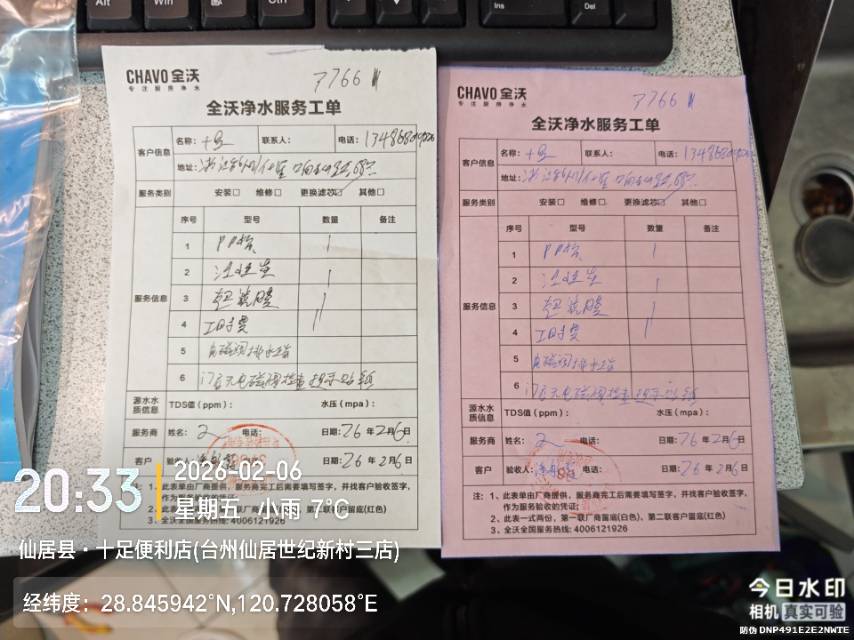 Alt
Win
Ctrl
Ins
Del
CHAVO 全沃
专注厨房净水
7766
全沃净水服务工单
客户信息
名称：十足
联系人：
电话：
地址：
服务类别
安装□ 维修□ 更换滤芯☑ 其他□
服务信息
序号 型号 数量 备注
1 PP棉 1
2 活性炭 1
3 超滤膜 1
4 工时费 1
5 电磁阀排水口
6
源水水质信息
TDS值（ppm）： 水压（mpa）：
服务商
姓名： 电话： 日期：26年2月6日
客户
验收人： 电话： 日期：26年2月6日
注：1、此表单由厂商提供，服务商完工后需要填写签字，并找客户验收签字，
作为服务验收的凭证；
2、此表一式两份，第一联厂商留底(白色)、第二联客户留底(红色)
3、全沃全国服务热线：4006121926
CHAVO 全沃
专注厨房净水
7766
全沃净水服务工单
客户信息
名称：十足
联系人：
电话：
地址：
服务类别
安装□ 维修□ 更换滤芯☑ 其他□
服务信息
序号 型号 数量 备注
1 PP棉 1
2 活性炭 1
3 超滤膜 1
4 工时费 1
5 电磁阀排水口
6
源水水质信息
TDS值（ppm）： 水压（mpa）：
服务商
姓名： 电话： 日期：26年2月6日
客户
验收人： 电话： 日期：26年2月6日
注：1、此表单由厂商提供，服务商完工后需要填写签字，并找客户验收签字，
作为服务验收的凭证；
2、此表一式两份，第一联厂商留底(白色)、第二联客户留底(红色)
3、全沃全国服务热线：4006121926
20:33
2026-02-06
星期五 小雨 7℃
仙居县·十足便利店(台州仙居世纪新村三店)
经纬度：28.845942°N,120.728058°E
今日水印
相机 真实可验
防伪 DNP491E2E2NWTE